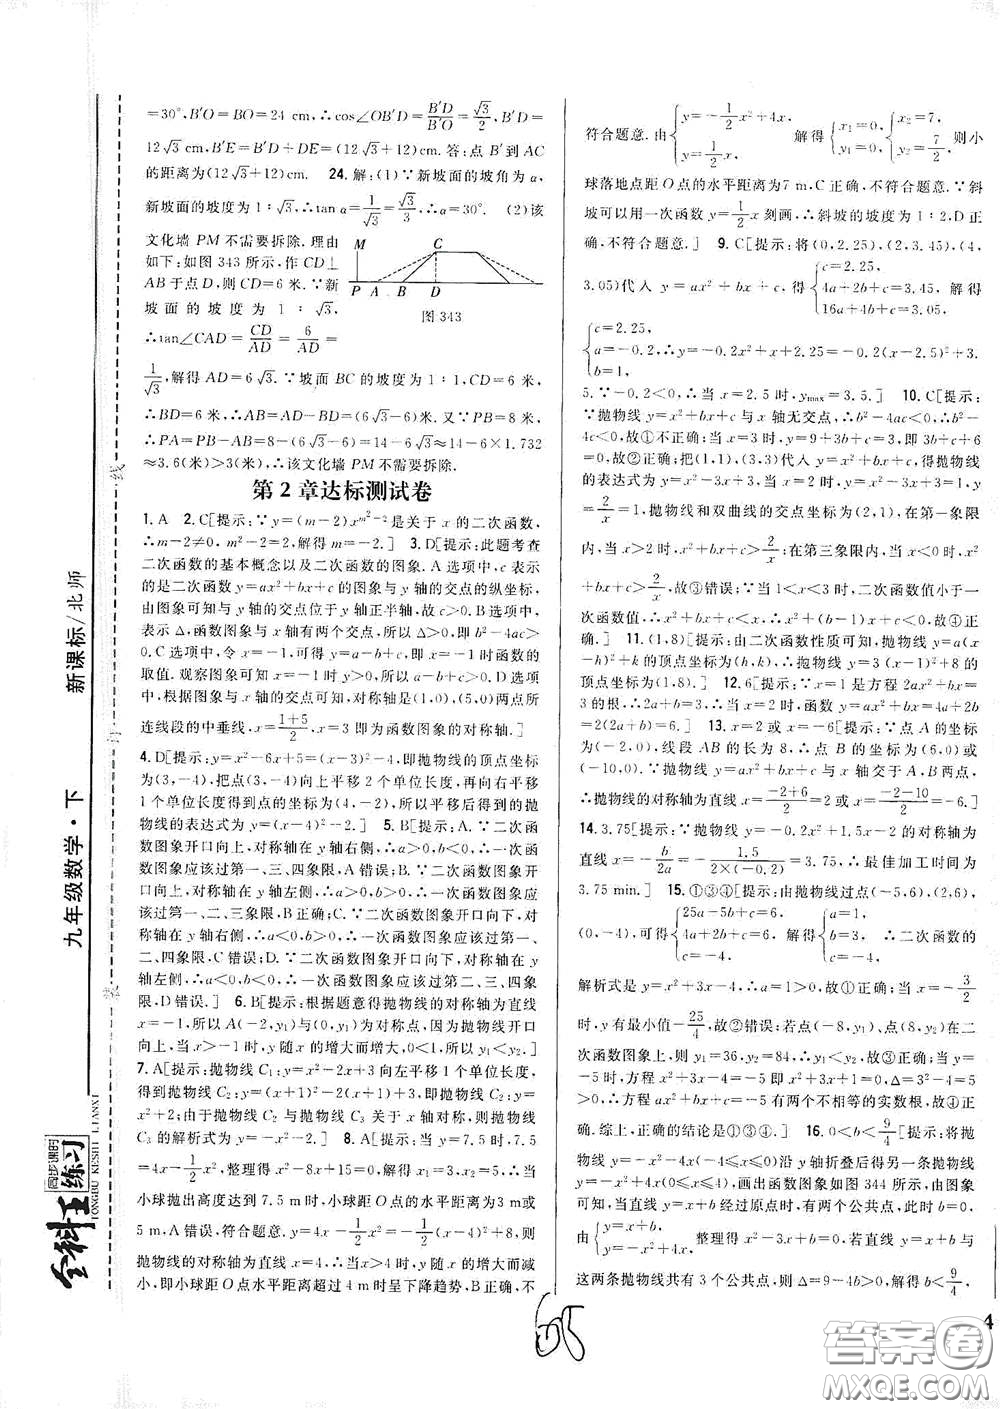 =30°,B′O=BO=24 cm,∴cos∠OB′D=B′D/B′O=√3/2,B′D=
12√3 cm,B′E=B′D+DE=(12√3+12)cm.答:点B′到AC
的距离为(12√3+12)cm. 24.解:(1)∵新坡面的坡角为α,
新坡面的坡度为1∶√3,∴tan α=1/√3=√3/3,∴α=30°. (2)该
文化墙PM不需要拆除.理由
如下:如图343所示,作CD⊥
AB于点D,则CD=6米.∵新
坡面的坡度为1∶√3,
∴tan∠CAD=CD/AD=6/AD=
M C
P A B D
图343
1/√3,解得AD=6√3.∵坡面BC的坡度为1∶1,CD=6米,
∴BD=6米,∴AB=AD-BD=(6√3-6)米.又∵PB=8米,
∴PA=PB-AB=8-(6√3-6)=14-6√3≈14-6×1.732
≈3.6(米)>3(米),∴该文化墙PM不需要拆除.
第2章达标测试卷
1.A 2.C[提示:∵y=(m-2)x^{m²-2}是关于x的二次函数,
∴m-2≠0,m²-2=2,解得m=-2.] 3.D[提示:此题考查
二次函数的基本概念以及二次函数的图象.A选项中,c表示
的是二次函数y=ax²+bx+c与y轴的交点的纵坐标,
由图象可知与y轴的交点位于y轴正半轴,故c>0.B选项中,
表示Δ,函数图象与x轴有两个交点,所以Δ>0,即b²-4ac>
0.C选项中,令x=-1,可得y=a-b+c,即x=-1时函数的
取值.观察图象可知x=-1时y>0,所以a-b+c>0.D选项
中,根据图象与x轴的交点可知,对称轴是(1,0),(5,0)两点所
连线段的中垂线,x=(1+5)/2,x=3即为函数图象的对称轴.]
4.D[提示:∵y=x²-6x+5=(x-3)²-4,即抛物线的顶点坐标
为(3,-4),把点(3,-4)向上平移2个单位长度,再向右平移
1个单位长度得到点的坐标为(4,-2),所以平移后得到的抛
物线的表达式为y=(x-4)²-2.] 5.B[提示:A.∵二次函
数图象开口向上,对称轴在y轴右侧,∴a>0,b<0,∴一次函数
图象应该过第一、三、四象限,A错误;B.∵二次函数图象开口
向上,对称轴在y轴左侧,∴a>0,b>0,∴一次函数图象应
该过第一、二、三象限,B正确;C.∵二次函数图象开口向下,对
称轴在y轴右侧,∴a<0,b>0,∴一次函数图象应该过第一、
二、四象限,C错误;D.∵二次函数图象开口向下,对称轴在y
轴左侧,∴a<0,b<0,∴一次函数图象应该过第二、三、四象
限,D错误.] 6.B[提示:根据题意得抛物线的对称轴为直线
x=-1,所以A(-2,y₁)与(0,y₁)为对称点.因为抛物线开口
向上,当x>-1时,y随x的增大而增大,0<1,所以y₁<y₂.]
7.A[提示:抛物线C₁:y=x²-2x+3向左平移1个单位长度,
得到抛物线C₂:y=(x+1)²-2(x+1)+3,即抛物线C₂:y=
x²+2;由于抛物线C₂与抛物线C₃关于x轴对称,则抛物线
C₃的解析式为y=-x²-2.] 8.A[提示:当y=7.5时,7.5=
4x-1/2x²,整理得x²-8x+15=0,解得x₁=3,x₂=5,∴当
小球抛出高度达到7.5 m时,小球距O点的水平距离为3 m或
5 m,A错误,符合题意.y=4x-1/2x²=-1/2(x-4)²+8,则
抛物线的对称轴为直线x=4,∴当x>4时,y随x的增大而减
小,即小球距O点水平距离超过4 m时呈下降趋势,B正确,不
符合题意.由{y=-1/2x²+4x, y=1/2x, 解得{x₁=0, y₁=0, {x₂=7, y₂=7/2, 则小
球落地点距O点的水平距离为7 m,C正确,不符合题意.∵斜
坡可以用一次函数y=1/2x刻画,∴斜坡的坡度为1∶2,D正
确,不符合题意.] 9.C[提示:将(0,2.25),(2,3.45),(4,
3.05)代入y=ax²+bx+c,得{c=2.25, 4a+2b+c=3.45, 16a+4b+c=3.05, 解得
{c=2.25, a=-0.2, b=1, ∴y=-0.2x²+x+2.25=-0.2(x-2.5)²+3.
5.∵-0.2<0,∴当x=2.5时,y_max=3.5.] 10.C[提示:
∵抛物线y=x²+bx+c与x轴无交点,∴b²-4ac<0,∴b²-
4c<0,故①不正确;当x=3时,y=9+3b+c=3,即3b+c+6
=0,故②正确;把(1,1),(3,3)代入y=x²+bx+c,得抛物线
的表达式为y=x²-3x+3,当x=2时,y=x²-3x+3=1,y
=2/x=1,抛物线和双曲线的交点坐标为(2,1),在第一象限
内,当x>2时,x²+bx+c>2/x;在第三象限内,当x<0时,x²
+bx+c>2/x,故③错误;∵当1<x<3时,二次函数值小于一
次函数值,∴x²+bx+c<x,∴x²+(b-1)x+c<0,故④正
确.] 11.(1,8)[提示:由二次函数性质可知,抛物线y=a(x
-h)²+k的顶点坐标为(h,k),∴抛物线y=3(x-1)²+8的
顶点坐标为(1,8).] 12.6[提示:∵x=1是方程2ax²+bx=
3的根,∴2a+b=3,∴当x=2时,函数y=ax²+bx=4a+2b
=2(2a+b)=6.] 13.x=2或x=-6[提示:∵点A的坐标
为(-2,0),线段AB的长为8,∴点B的坐标为(6,0)或
(-10,0).∵抛物线y=ax²+bx+c与x轴交于A,B两点,
∴抛物线的对称轴为直线x=(-2+6)/2=2或x=(-2-10)/2=-6.]
14.3.75[提示:∵抛物线y=-0.2x²+1.5x-2的对称轴为
直线x=-b/2a=-1.5/(2×(-0.2))=3.75,∴最佳加工时间为
3.75 min.] 15.①③④[提示:由抛物线过点(-5,6),(2,6),
(0,-4),可得{25a-5b+c=6, 4a+2b+c=6, c=-4, 解得{a=1, b=3, c=-4, ∴二次函数的
解析式是y=x²+3x-4,∴a=1>0,故①正确;当x=-3/2
时,y有最小值-25/4,故②错误;若点(-8,y₁),点(8,y₂)在二
次函数图象上,则y₁=36,y₂=84,∴y₁<y₂,故③正确;当y=
-5时,方程x²+3x-4=-5有两个不相等的实数根,故④正
确.综上,正确的结论是①③④.] 16.0<b<9/4[提示:将抛
物线y=x²-4x(-4≤x≤0)沿y轴折叠后得另一条抛物线
为y=x²-4x(0≤x≤4),画出函数图象如图344所示,由图象
可知,当直线y=x+b经过原点时有两个公共点,此时b=0.
由{y=x+b, y=x²-4x, 整理得x²-5x-b=0.若直线y=x+b与
这两条抛物线共有3个公共点,则Δ=9-4b>0,解得b<9/4,
线
装
新课标/北师
九年级数学·下
全科王
同步课时
练习
TONGBU KESHI LIANXI
4
答案圈
MXQE.COM